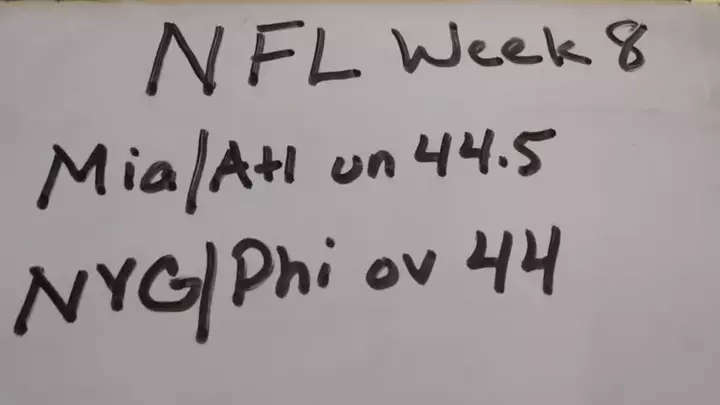 NFL Week 8
Mia/Atl un 44.5
NYG/Phi ov 44